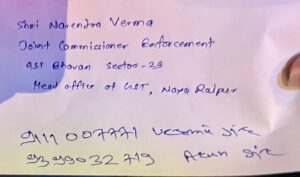 Shri Narendra Verma
Joint Commissioner Enforcement
GST Bhavan Sector-29
Head office of GST, Naya Raipur
9111007771
9399032719